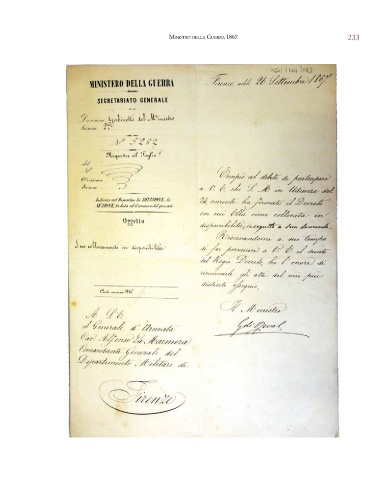 MINISTRO DELLA GUERRA 1867
233
MINISTERO DELLA GUERRA
SEGRETARIATO GENERALE
Divisione Gabinetto del Ministro
Sezione 2ª
N° 5282
Risposta al Foglio
del
N°
Divisione
Sezione
Indicare nel Riscontro la DIVISIONE, la
SEZIONE, la data ed il numero del presente
Oggetto
Suo collocamento in disponibilità
A S. E.
il Generale d'Armata
Cav. Alfonso La Marmora
Comandante Generale del
Dipartimento Militare di
Firenze
Firenze addì 26 Settembre 1867
Compio al debito di partecipare
a V. E. che S. M. in Udienza del
24 corrente ha firmato il Decreto
con cui Ella viene collocata in
disponibilità, in seguito a Sua domanda.
Riservandomi a suo tempo
di far pervenire a V. E. il
Regio Decreto, ho l'onore di
rinnovarle gli atti del mio più
distinto ossequio.
Il Ministro